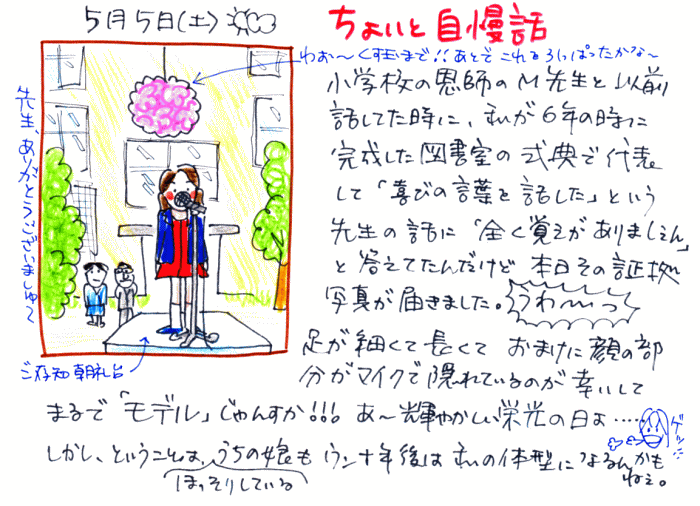 5月5日(土)
ちょいと自慢話
わぉ〜くす玉まで!!あとでこれもひっぱったかな〜
小学校の恩師のM先生と以前
話してた時に、私が6年の時に
完成した図書室の式典で代表
して「喜びの言葉を話した」という
先生の話に「全く覚えがありましぇん」
と答えてたんだけど本日その証拠
写真が届きました。うわ〜っ
足が細くて長くておまけに顔の部
分がマイクで隠れているのが幸いして
まるで「モデル」じゃんすか!!!あ〜輝やかしい栄光の日よ……
ゲッ!!
しかし、ということは、うちの娘もウン十年後は私の体型になるんかも
ねぇ。
ほっそりしている
先生、ありがとうございましゅ〜
ご存知朝礼台